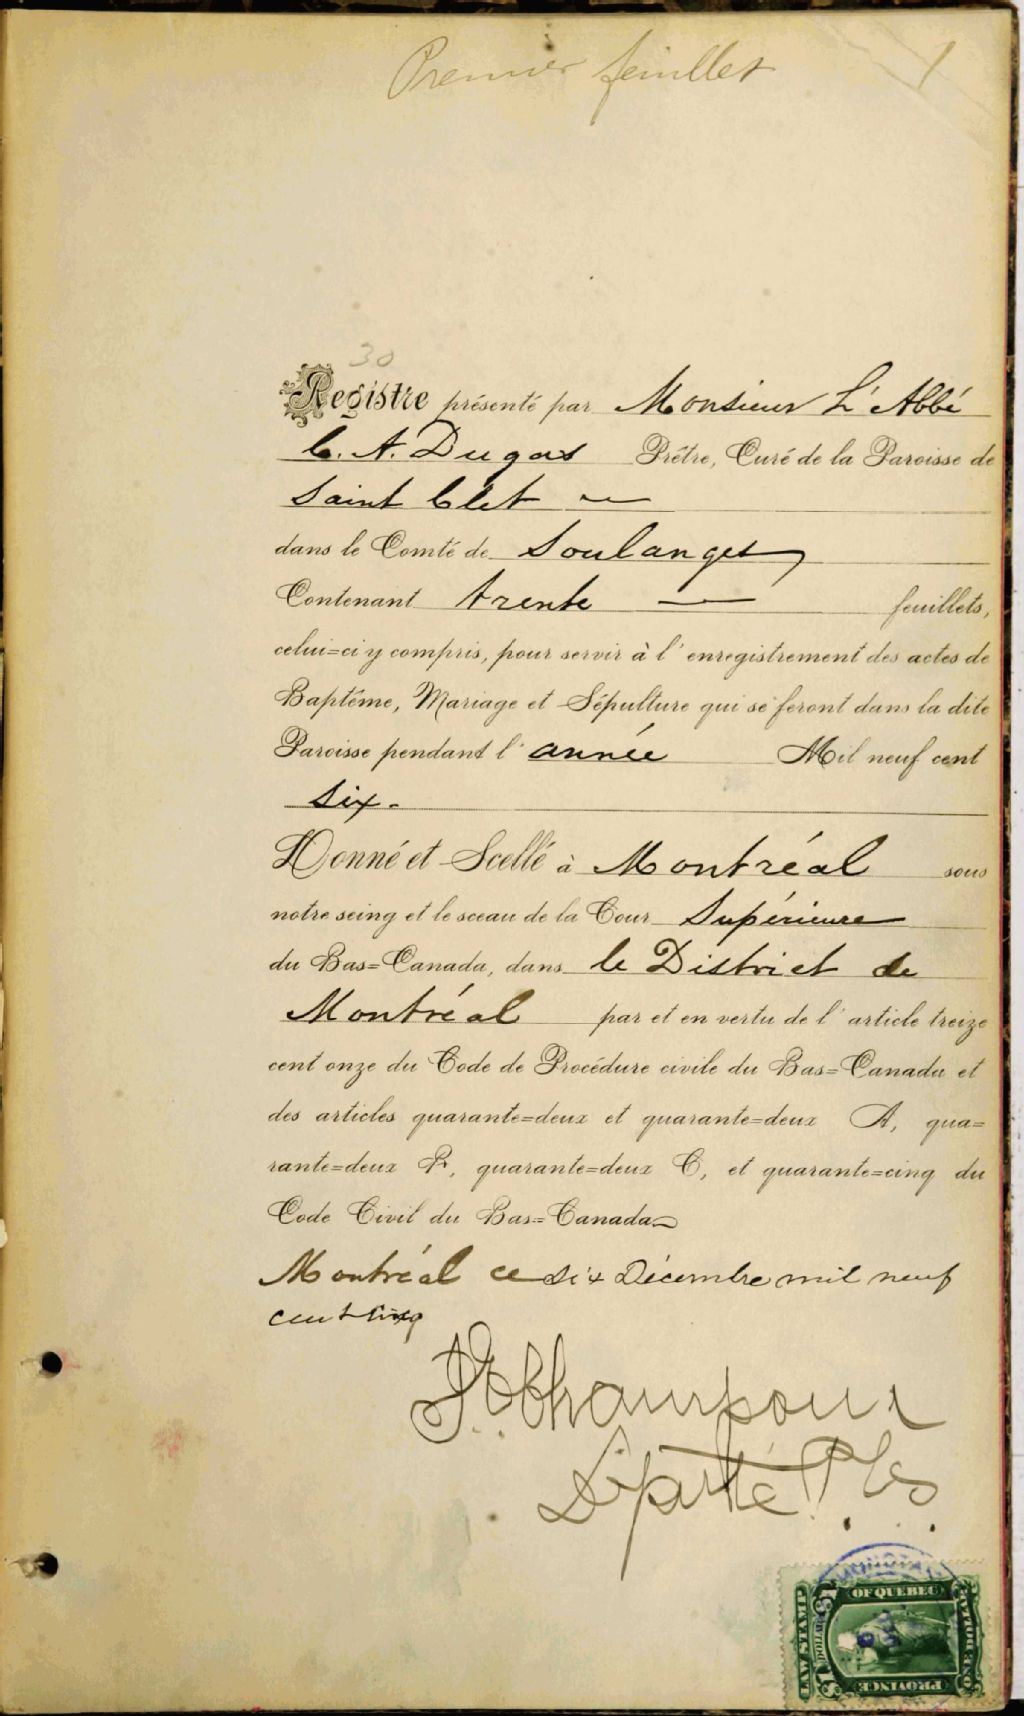 Premier feuillet 1
30
Registre présenté par Monsieur L'Abbé
C. A. Dugas Prêtre, Curé de la Paroisse de
Saint Clet
dans le Comté de Soulanges
Contenant trente feuillets,
celui=ci y compris, pour servir à l'enregistrement des actes de
Baptême, Mariage et Sépulture qui se feront dans la dite
Paroisse pendant l'année Mil neuf cent
six.
Donné et Scellé à Montréal sous
notre seing et le sceau de la Cour Supérieure
du Bas=Canada, dans le District de
Montréal par et en vertu de l'article treize
cent onze du Code de Procédure civile du Bas=Canada et
des articles quarante=deux et quarante=deux A, qua=
rante=deux B, quarante=deux C, et quarante=cinq du
Code Civil du Bas=Canada
Montréal ce six Décembre mil neuf
cent cinq
Champoux
Député
OF QUEBEC
LAW STAMP
$1
DOLLAR
PROVINCE